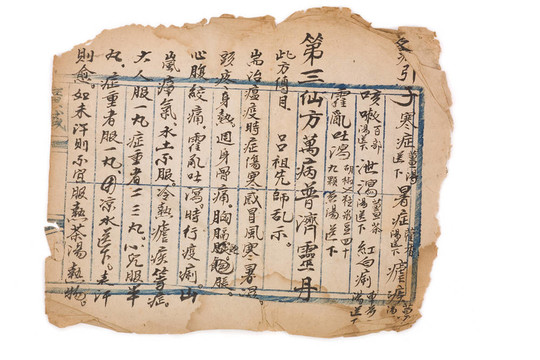 引子 寒症 薑湯送下 暑症 送下 瘧疾
咳嗽 百部湯送下 泄瀉 薑茶湯送下 紅白痢 湯送下
霍亂吐瀉 九顆 湯送下
第三仙方萬病普濟靈丹
此方傳自 呂祖先師乩示。
耑治瘟疫時症傷寒感冒風寒暑濕
頭疼身熱。週身骨痛。胸膈飽脹。
心腹絞痛。霍亂吐瀉時行疫痢。山
嵐瘴氣。水土不服。冷熱瘧疾等症。
大人服一丸。症重者二三丸。小兒服半
丸。症重者服一丸。用涼水送下。其汗
則愈。如未汗則不宜服熱茶湯熱物。